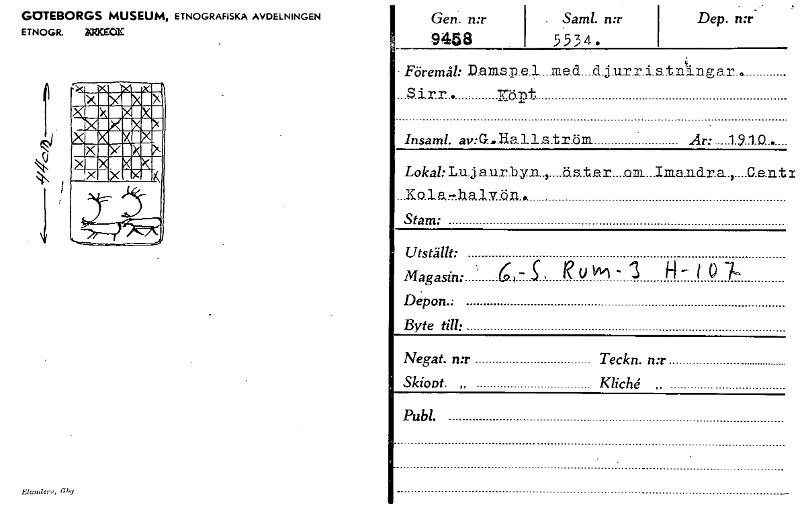 GÖTEBORGS MUSEUM, ETNOGRAFISKA AVDELNINGEN
ETNOGR.
44 cm
Elanders, Gbg
Gen. n:r Saml. n:r Dep. n:r
9458 5534.
Föremål: Damspel med djurristningar.
Sirr. Köpt
Insaml. av: G. Hallström År: 1910.
Lokal: Lujaurbyn, öster om Imandra, Centr
Kola-halvön.
Stam:
Utställt:
Magasin: G.-S. Rum-3 H-107
Depon.:
Byte till:
Negat. n:r Teckn. n:r
Skiopt. „ Kliché „
Publ.